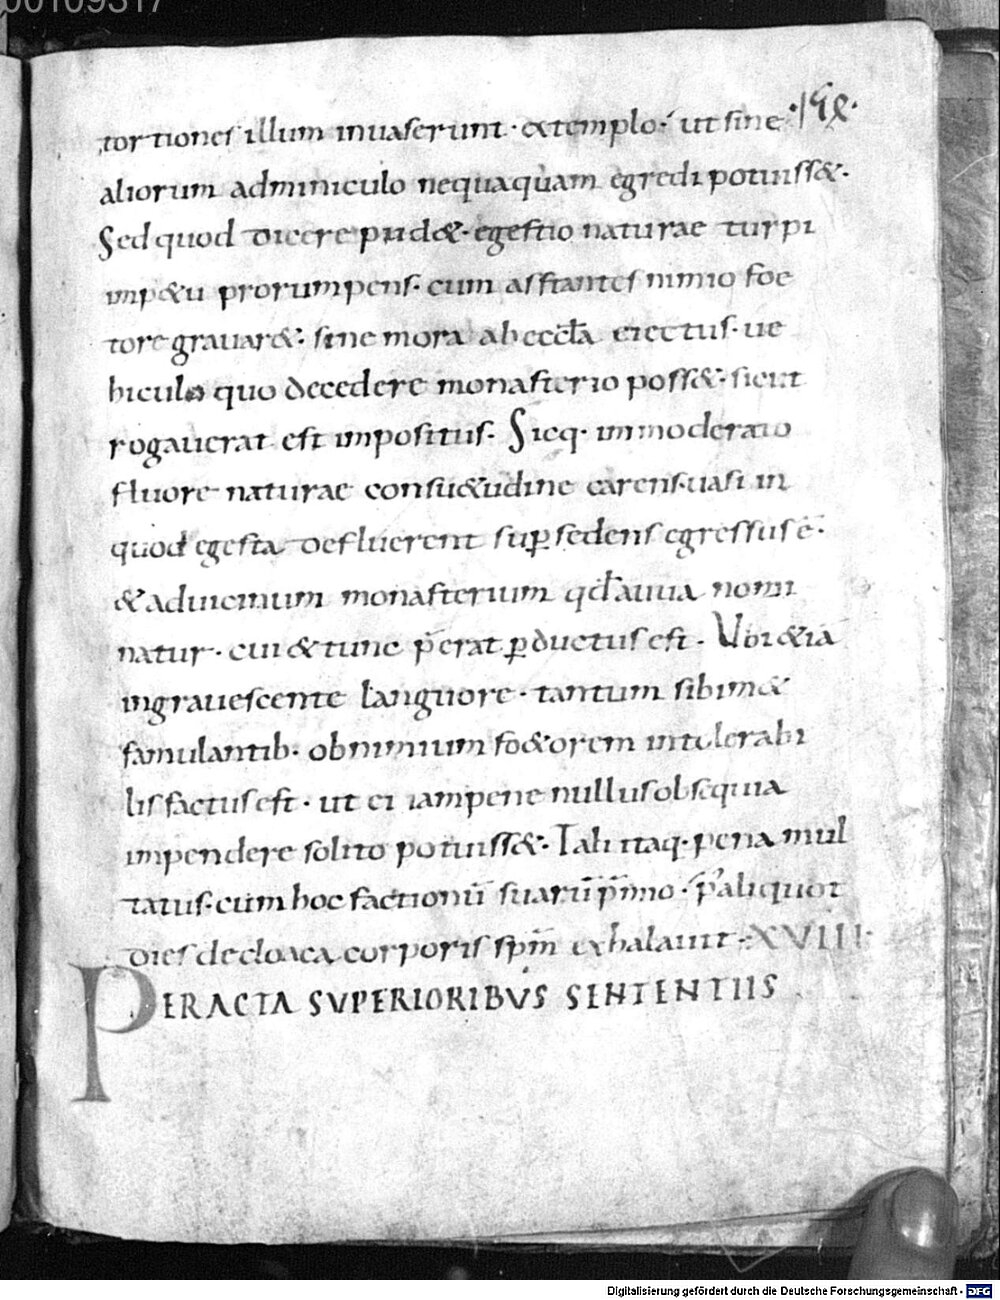 00109317
tortiones illum inuaserunt · extemplo · ut sine
aliorum adminiculo nequaquam egredi potuiss&·
Sed quod dicere pud&· egestio naturae turpi
imp&u prorumpens· cum asstantes nimio foe
tore grauar&· sine mora ab eccła eiectus· ue
hiculo quo decedere monasterio poss&· sicut
rogauerat est impositus· Sicq· immoderato
fluore naturae consu&udine carens uasi in
quod egesta defluerent sup sedens egressus ē·
& aduicinum monasterium qđ auua nomi
natur· cui & tunc p̄erat ꝑductus est· Ubi & iā
ingrauescente languore· tantum sibim&
famulantib· ob nimium fo&orem intolerabi
lis factus est· ut ei iam pene nullus obsequia
impendere solito potuiss&· Tali itaq· pena mul
tatus· cum hoc factionū suarū p̄mio· p̄ aliquot
dies de cloaca corporis sp̄m exhalauit · XVIII·
PERACTA SUPERIORIBUS SENTENTIIS
Digitalisierung gefördert durch die Deutsche Forschungsgemeinschaft - DFG